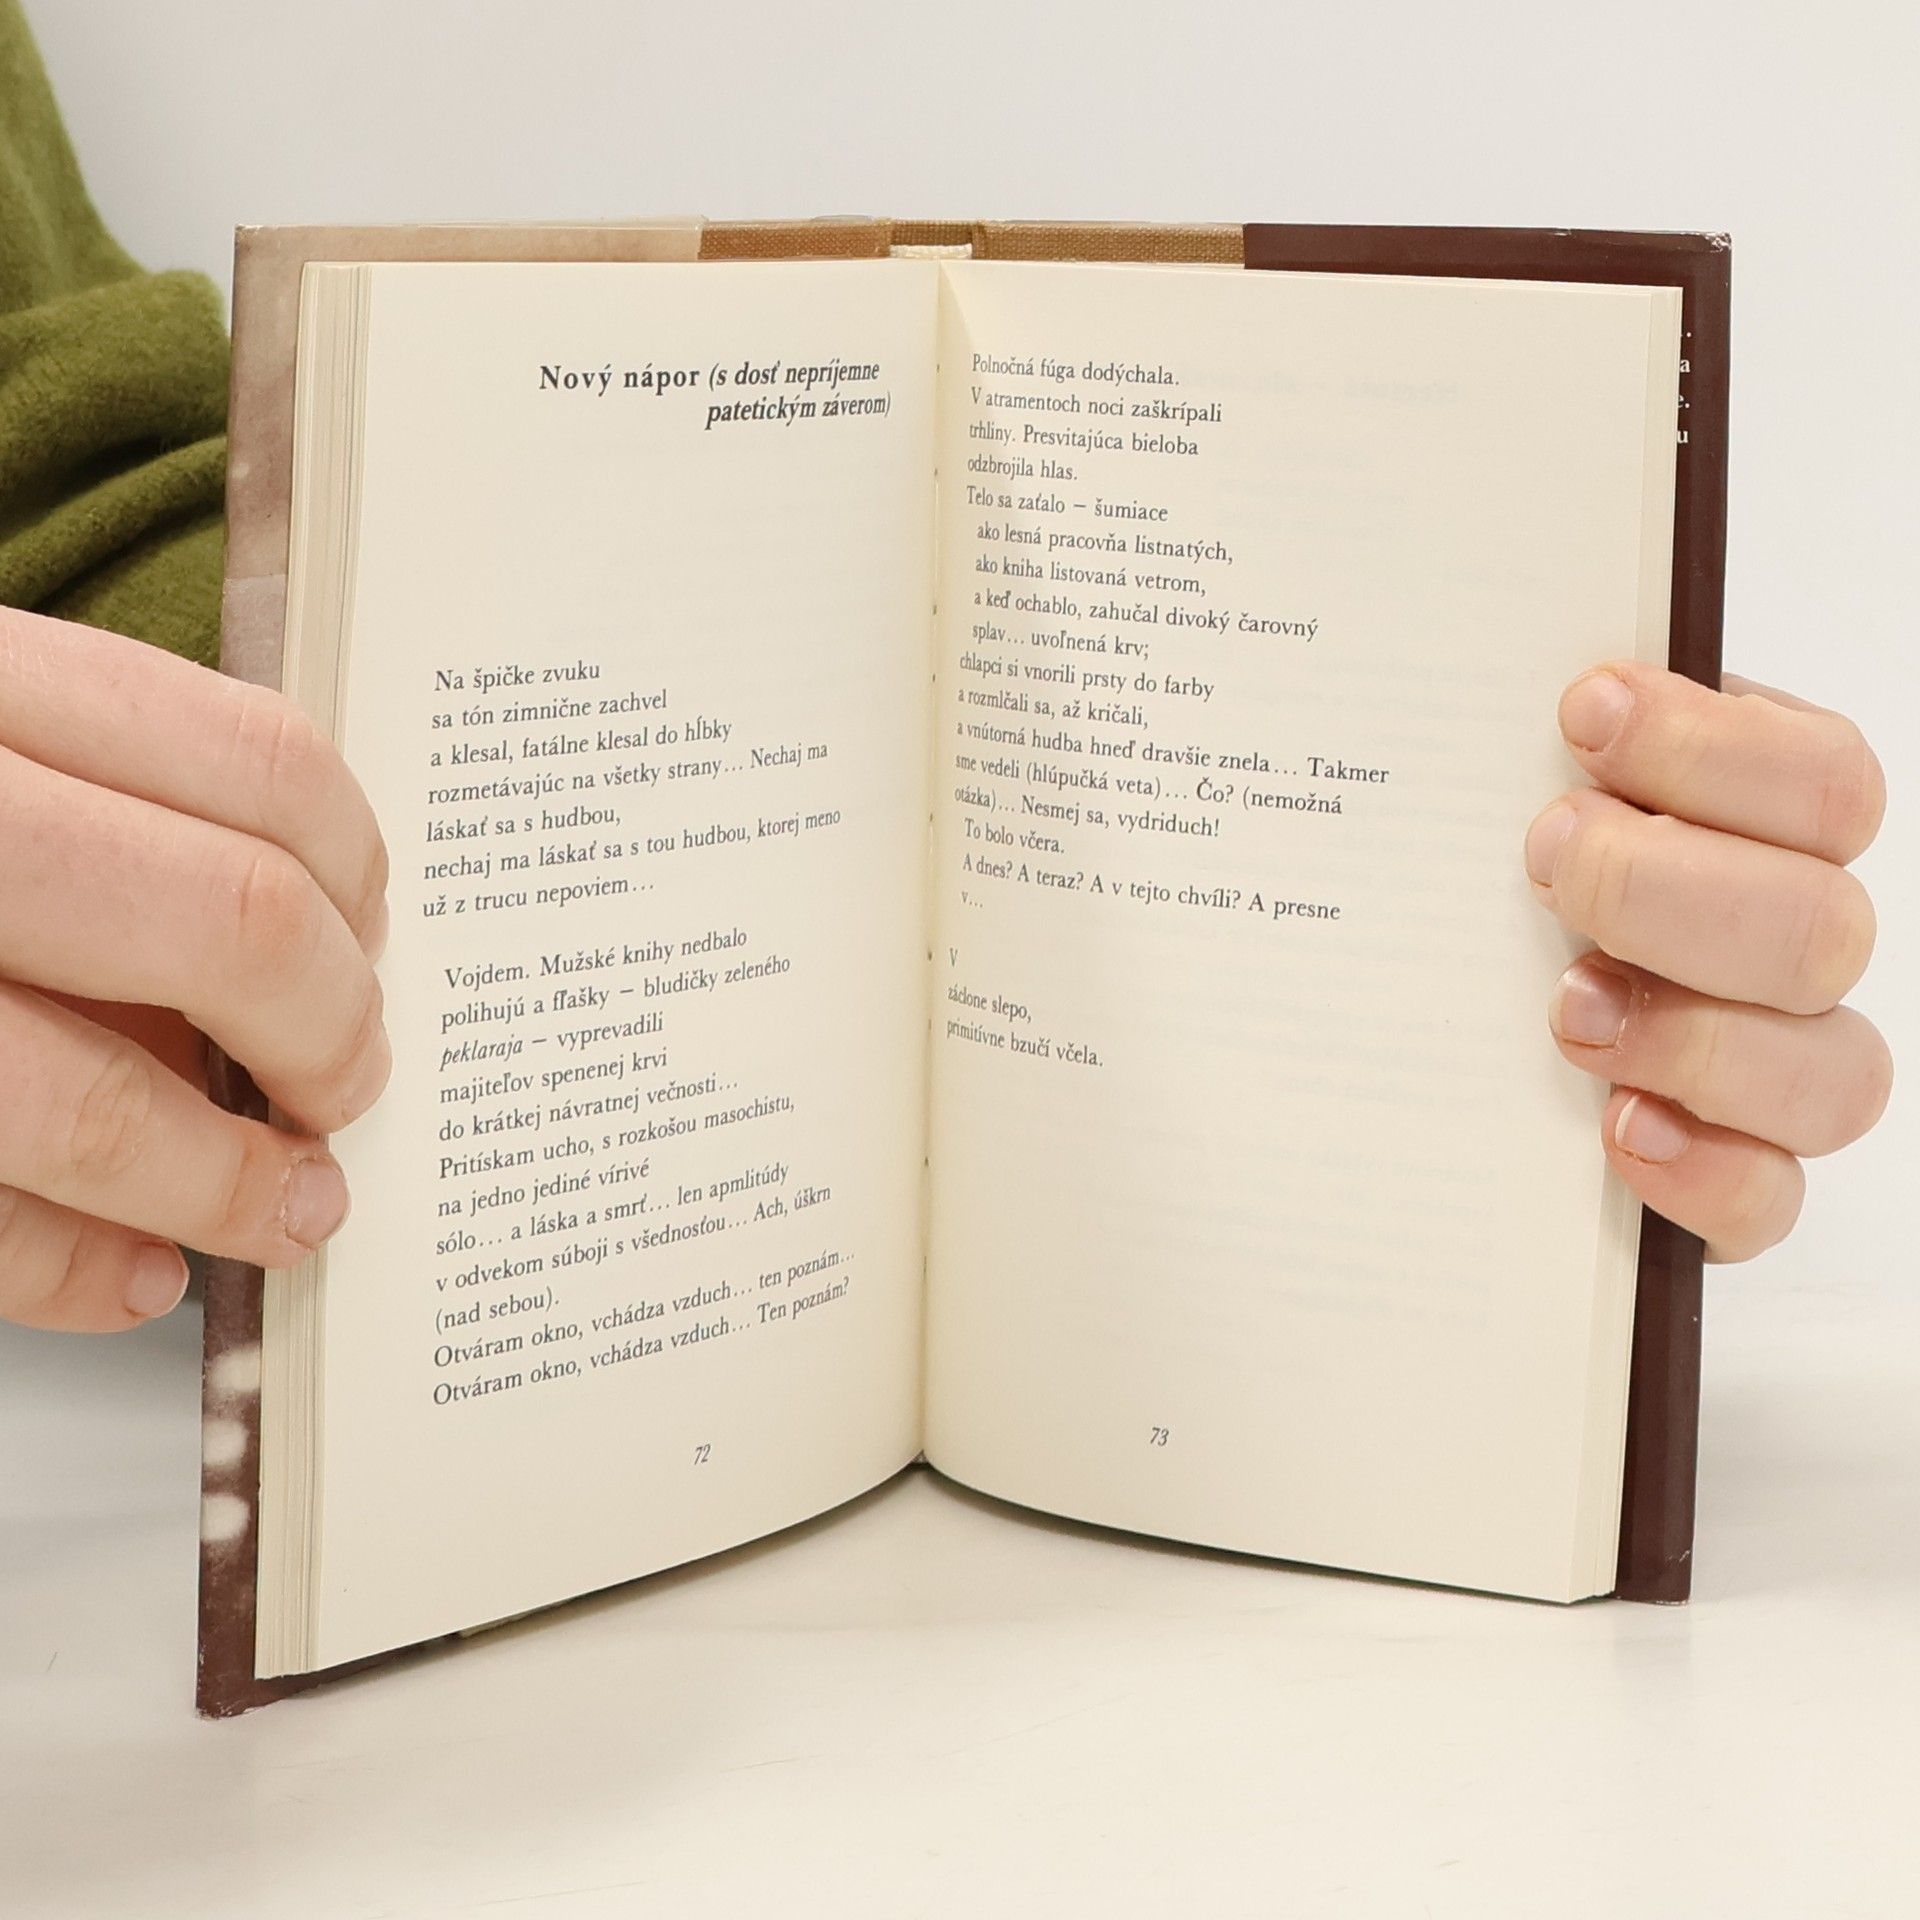 Nový nápor (s dosť nepríjemne
patetickým záverom)
Na špičke zvuku
sa tón zimnične zachvel
a klesal, fatálne klesal do hĺbky
rozmetávajúc na všetky strany… Nechaj ma
láskať sa s hudbou,
nechaj ma láskať sa s tou hudbou, ktorej meno
už z trucu nepoviem…
Vojdem. Mužské knihy nedbalo
polihujú a fľašky – bludičky zeleného
peklaraja – vyprevadili
majiteľov spenenej krvi
do krátkej návratnej večnosti…
Pritískam ucho, s rozkošou masochistu,
na jedno jediné vírivé
sólo… a láska a smrť… len apmlitúdy
v odvekom súboji s všednosťou… Ach, úškrn
(nad sebou).
Otváram okno, vchádza vzduch… ten poznám…
Otváram okno, vchádza vzduch… Ten poznám?
72
Polnočná fúga dodýchala.
V atramentoch noci zaškrípali
trhliny. Presvitajúca bieloba
odzbrojila hlas.
Telo sa zaťalo – šumiace
ako lesná pracovňa listnatých,
ako kniha listovaná vetrom,
a keď ochablo, zahučal divoký čarovný
splav… uvoľnená krv;
chlapci si vnorili prsty do farby
a rozmlčali sa, až kričali,
a vnútorná hudba hneď dravšie znela… Takmer
sme vedeli (hlúpučká veta)… Čo? (nemožná
otázka)… Nesmej sa, vydriduch!
To bolo včera.
A dnes? A teraz? A v tejto chvíli? A presne
v…
V
záclone slepo,
primitívne bzučí včela.
73
.
a
e.
u